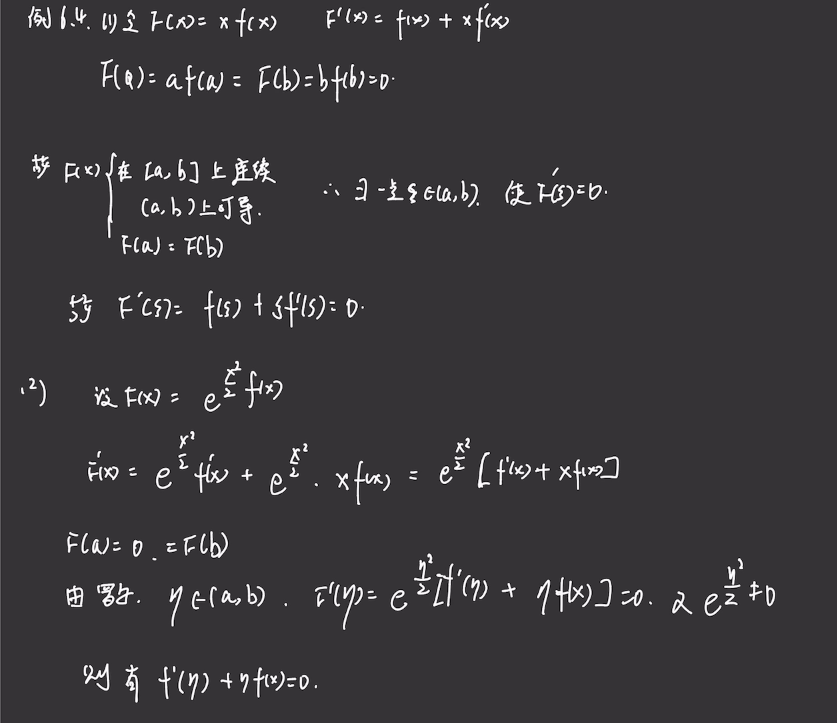 例6.4. (1) 令 F(x) = x f(x)  F'(x) = f(x) + x f'(x)
F(a) = a f(a) = F(b) = b f(b) = 0.
故 F(x) { 在 [a, b] 上连续
(a, b) 上可导.
F(a) = F(b)
∴ ∃ 一点 ξ ∈ (a, b). 使 F'(ξ) = 0.
故 F'(ξ) = f(ξ) + ξ f'(ξ) = 0.
(2) 设 F(x) = e^{x²/2} f(x)
F'(x) = e^{x²/2} f'(x) + e^{x²/2} · x f(x) = e^{x²/2} [f'(x) + x f(x)]
F(a) = 0. = F(b)
由罗尔. η ∈ (a, b). F'(η) = e^{η²/2} [f'(η) + η f(x)] = 0. 又 e^{η²/2} ≠ 0
则有 f'(η) + η f(x) = 0.